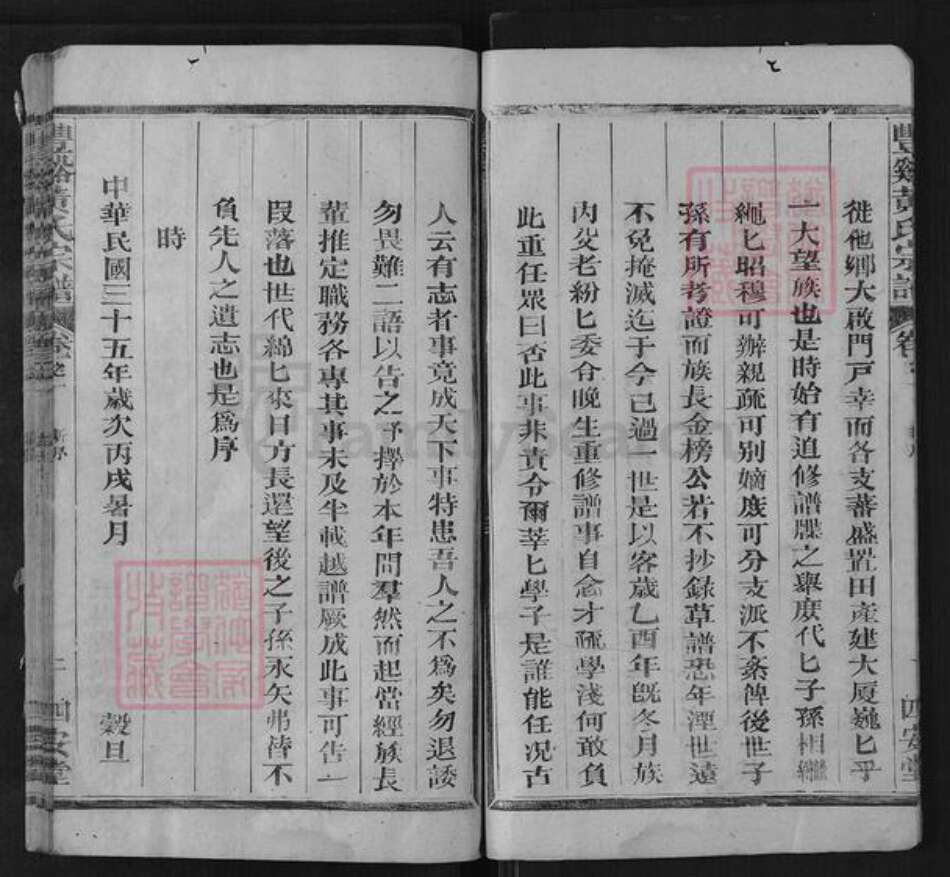 徙他鄉大啟門戶幸而各支蕃盛置田產建大厦巍匕乎
一大望族也是時始有追修譜牒之舉庶代匕子孫相繼
繩匕昭穆可辦親疏可別嫡庶可分支派不紊俾後世子
孫有所考證而族長金榜公若不抄錄草譜恐年湮世遠
不免掩滅迄于今已過一世是以客歲乙酉年旣冬月族
內父老紛匕委命晚生重修譜事自念才疏學淺何敢負
此重任眾曰否此事非責令爾莘匕學子是誰能任况古
人云有志者事竟成天下事特患吾人之不爲矣勿退諉
勿畏難二語以告之予擇於本年間羣然而起當經族長
輩推定職務各專其事未及半載越譜厥成此事可告一
段落也世代綿匕來日方長還望後之子孫永矢弗替不
負先人之遺志也是爲序
時
中華民國三十五年歲次丙戌暑月 穀旦
豐谿黃氏宗譜 卷
四安堂
豐谿黃氏宗譜 卷
四安堂